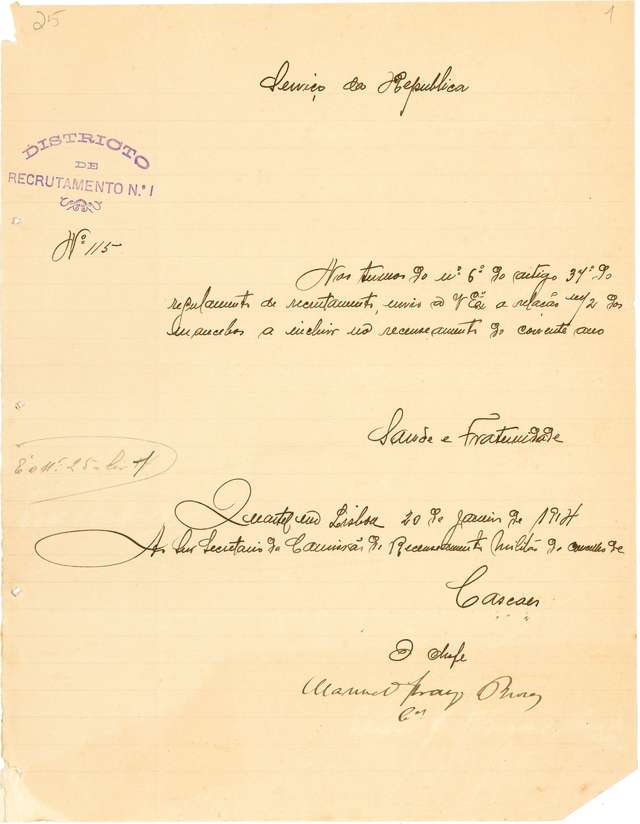 25
1
Serviço da Republica
DISTRICTO
DE
RECRUTAMENTO N.º 1
Nº 115
Nos termos do nº 6º do artigo 37º do
regulamento de recrutamento, envio a V Exª a relação m/2 dos
mancebos a incluir no recenseamento do corrente ano
Saude e Fraternidade
Quartel em Lisboa 20 de Janeiro de 1914
Ao Snr Secretario da Comissão de Recenseamento Militar do concelho de
Cascaes
O chefe
Manuel